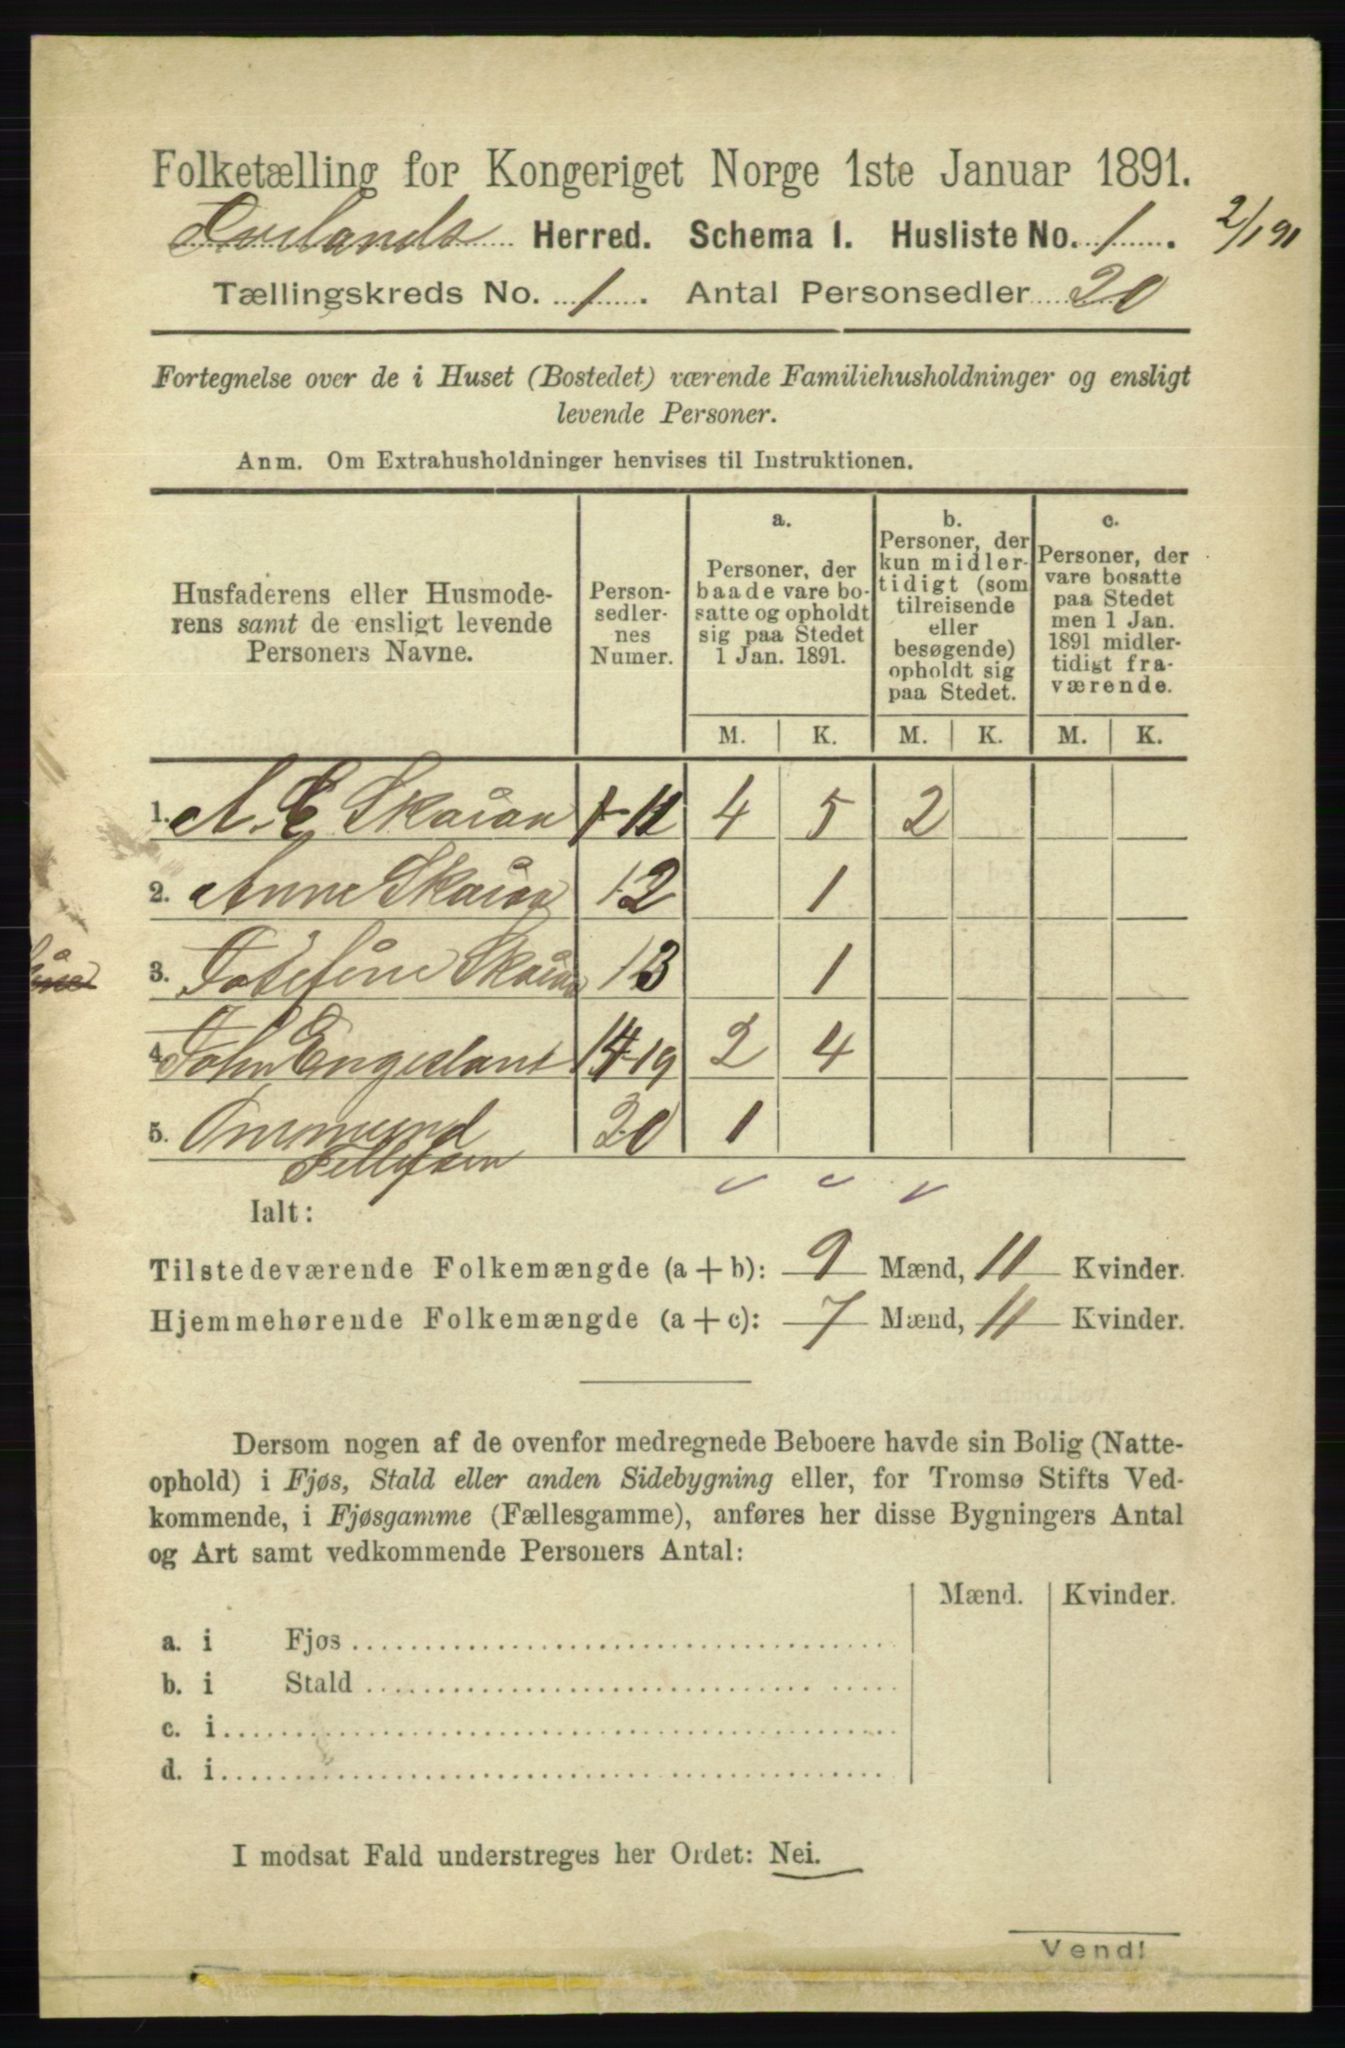 Folketælling for Kongeriget Norge 1ste Januar 1891.
Herred. Schema I. Husliste No. 1. 2/1 91
Tællingskreds No. 1. Antal Personsedler 20
Fortegnelse over de i Huset (Bostedet) værende Familiehusholdninger og ensligt
levende Personer.
Anm. Om Extrahusholdninger henvises til Instruktionen.
Husfaderens eller Husmode-
rens samt de ensligt levende
Personers Navne.
Person-
sedler-
nes
Numer.
a.
Personer, der
baade vare bo-
satte og opholdt
sig paa Stedet
1 Jan. 1891.
b.
Personer, der
kun midler-
tidigt (som
tilreisende
eller
besøgende)
opholdt sig
paa Stedet.
c.
Personer, der
vare bosatte
paa Stedet
men 1 Jan.
1891 midler-
tidigt fra-
værende.
M. K. M. K. M. K.
1. A. E. Skaiaa 1-11 4 5 2
2. Anne Skaiaa 12 1
3. Josefine Skaiaa 13 1
4. John Engesland 14-19 2 4
5. Ommund
Tellefsen 20 1
Ialt:
Tilstedeværende Folkemængde (a + b): 9 Mænd, 11 Kvinder.
Hjemmehørende Folkemængde (a + c): 7 Mænd, 11 Kvinder.
Dersom nogen af de ovenfor medregnede Beboere havde sin Bolig (Natte-
ophold) i Fjøs, Stald eller anden Sidebygning eller, for Tromsø Stifts Ved-
kommende, i Fjøsgamme (Fællesgamme), anføres her disse Bygningers Antal
og Art samt vedkommende Personers Antal:
Mænd. Kvinder.
a. i Fjøs
b. i Stald
c. i
d. i
I modsat Fald understreges her Ordet: Nei.
Vend!